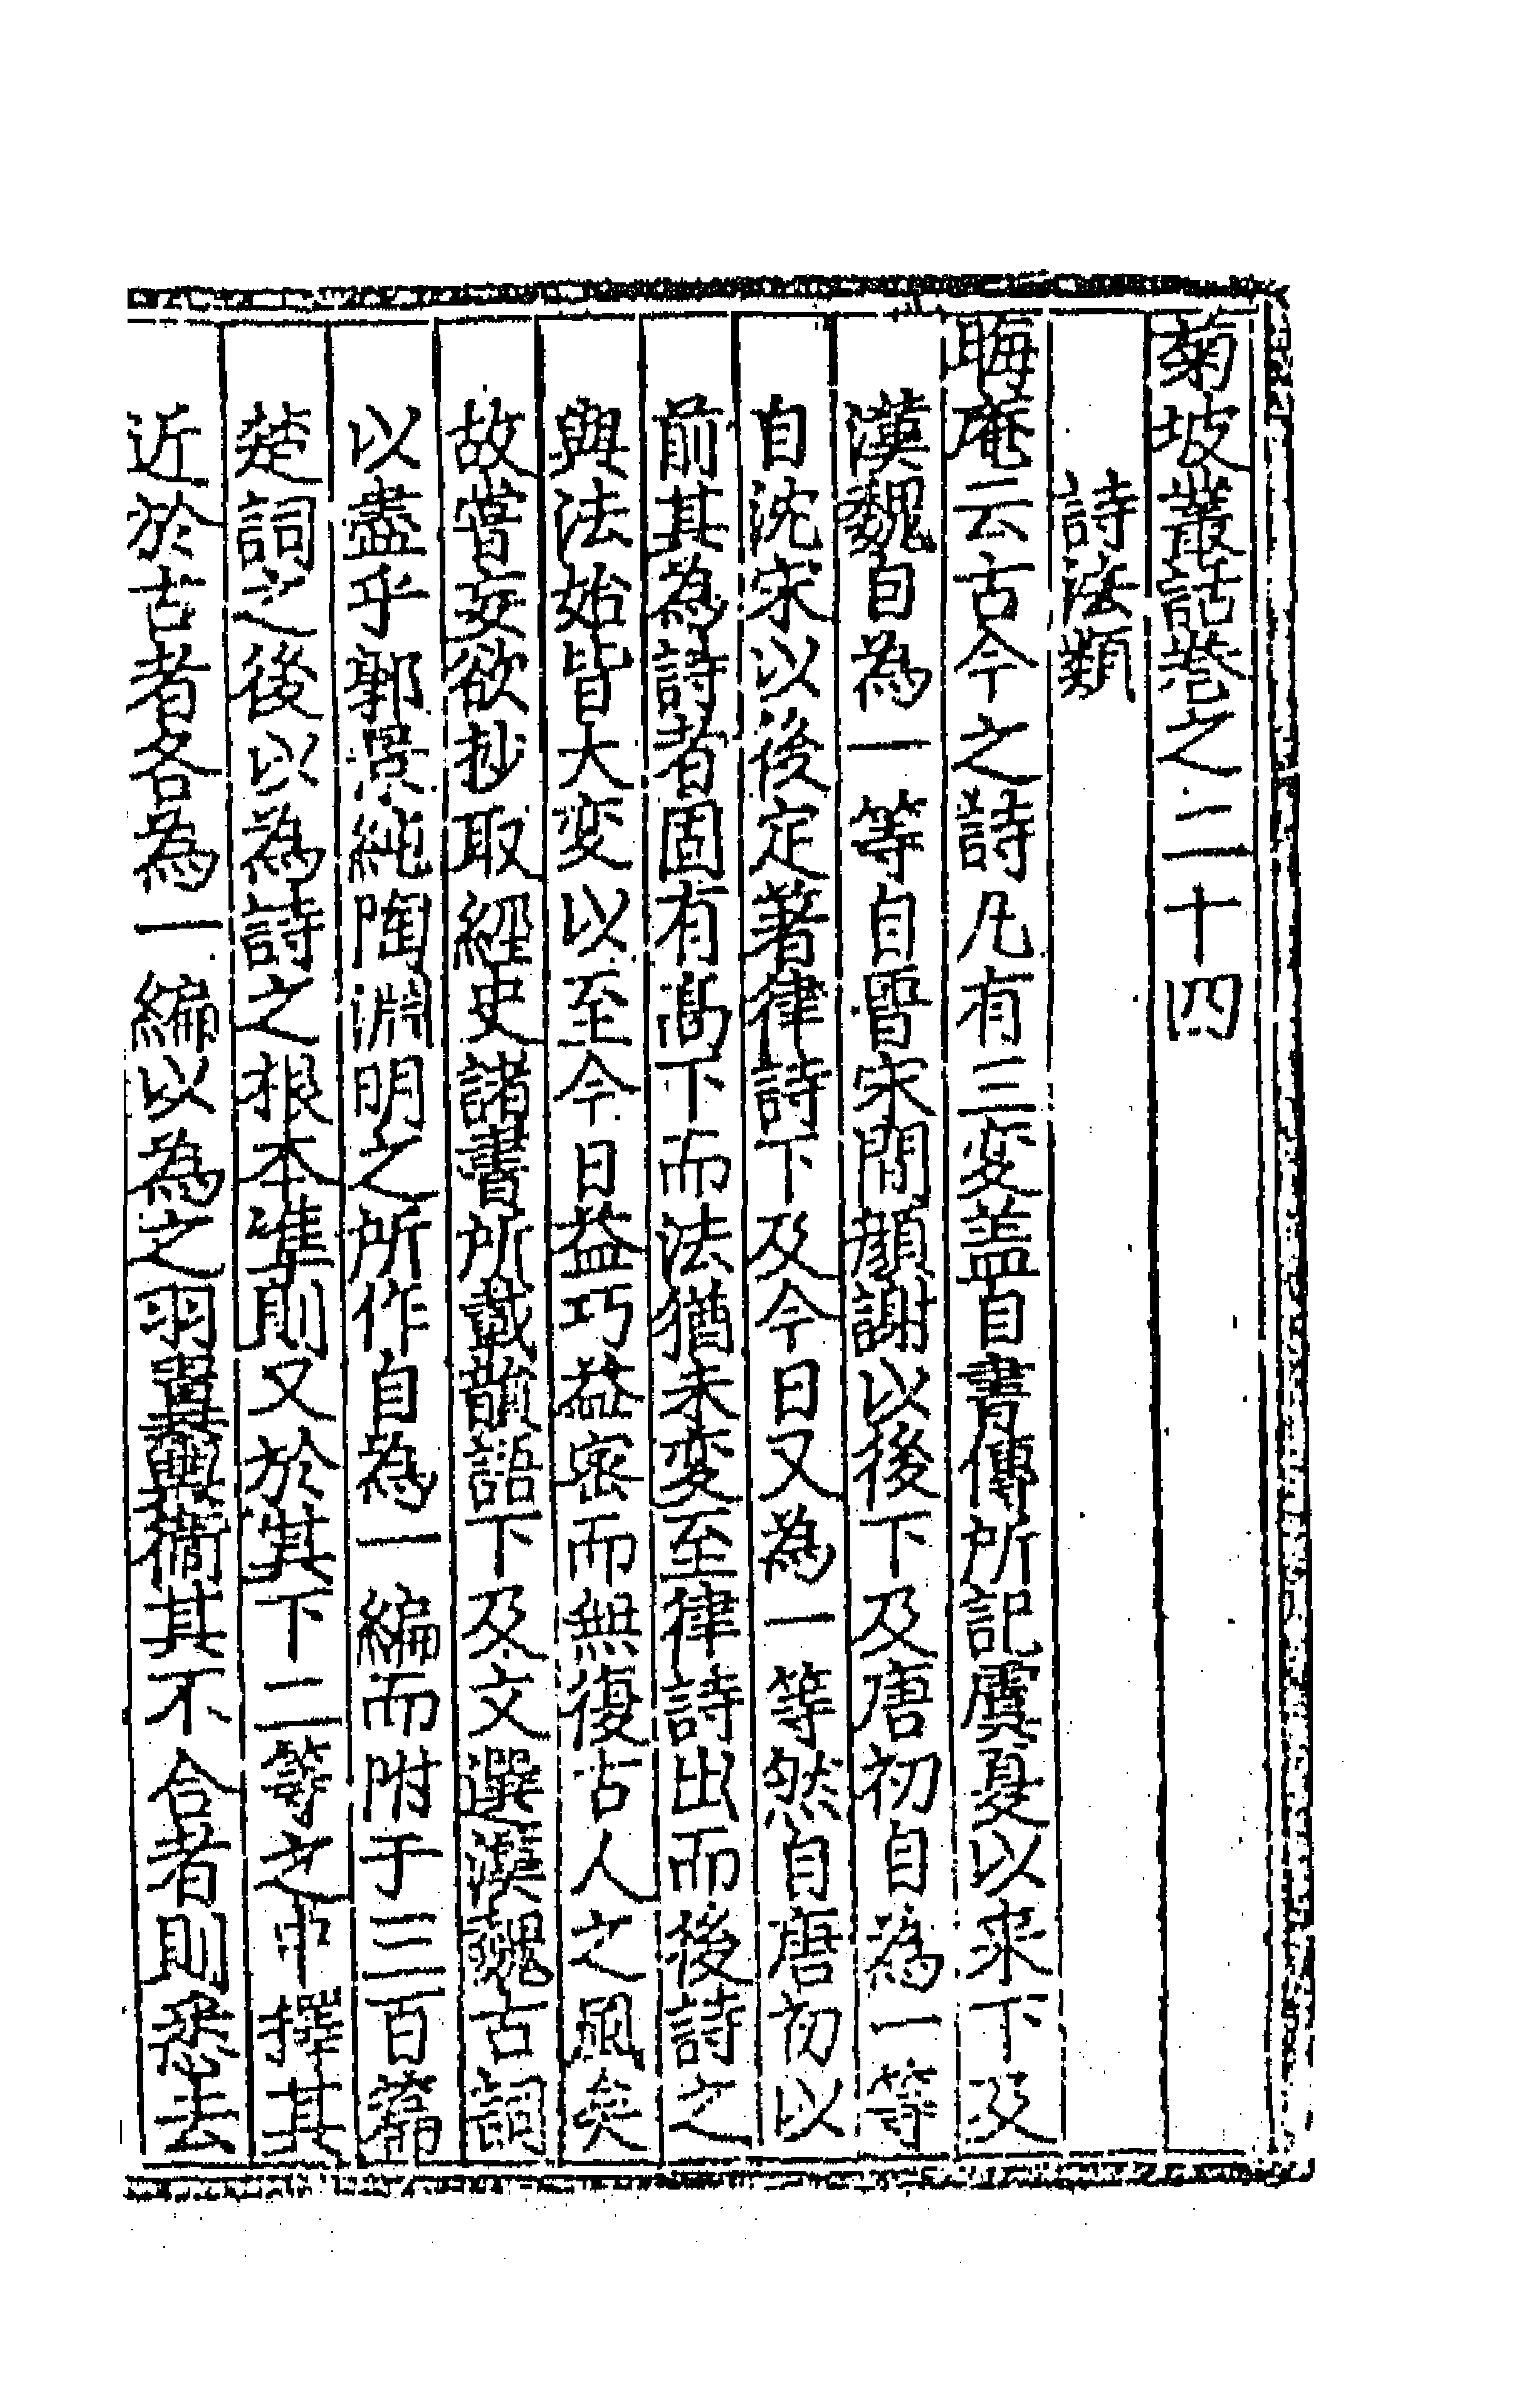 菊坡叢話卷之二十四
詩法類
晦庵云古今之詩凡有三変盖自書傳所記虞夏以来下及
漢魏自為一等自晋宋間顔謝以後下及唐初自為一等
自沈宋以後定著律詩下及今日又為一等然自唐初以
前其為詩者固有高下而法猶未変至律詩出而後詩之
與法始皆大変以至今日益巧益密而無復古人之風矣
故嘗妄欲抄取經史諸書所載韻語下及文選漢魏古詞
以盡乎郭景純陶淵明之所作自為一編而附于三百篇
楚詞之後以為詩之根本準則又於其下二等之中擇其
近於古者各為一編以為之羽翼輿衛其不合者則悉去